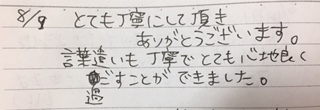 8/9 とても丁寧にして頂き
ありがとうございます。
言葉遣いも丁寧でとても心地良く
過ごすことができました。